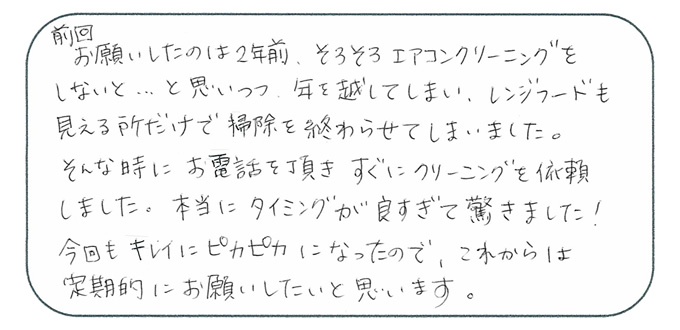 前回
お願いしたのは2年前、そろそろエアコンクリーニングを
しないと…と思いつつ、年を越してしまい、レンジフードも
見える所だけで掃除を終わらせてしまいました。
そんな時にお電話を頂きすぐにクリーニングを依頼
しました。本当にタイミングが良すぎて驚きました!
今回もキレイにピカピカになったので、これからは
定期的にお願いしたいと思います。